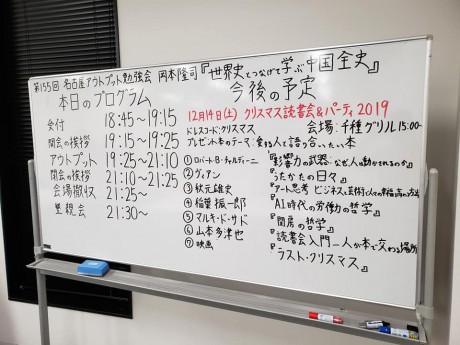 第155回 名古屋アウトプット勉強会 岡本隆司『世界史とつなげて学ぶ中国全史』
本日のプログラム
受付 18:45〜19:15
開会の挨拶 19:15〜19:25
アウトプット 19:25〜21:10
閉会の挨拶 21:10〜21:25
会場撤収 21:25〜
懇親会 21:30〜
今後の予定
12月14日(土) クリスマス読書会&パーティ2019
ドレスコード:クリスマス 会場:千種グリル 15:00-
プレゼント本のテーマ:愛する人と語り合いたい本
①ロバート・B・チャルディーニ『影響力の武器:なぜ、人は動かされるのか』
②ヴィアン『うたかたの日々』
③秋元雄史『アート思考 ビジネスと芸術で人々の幸福を高める方法』
④稲葉振一郎『AI時代の労働の哲学』
⑤マルキ・ド・サド『閨房の哲学』
⑥山本多津也『読書会入門 人が本で交わる場所』
⑦映画『ラスト・クリスマス』